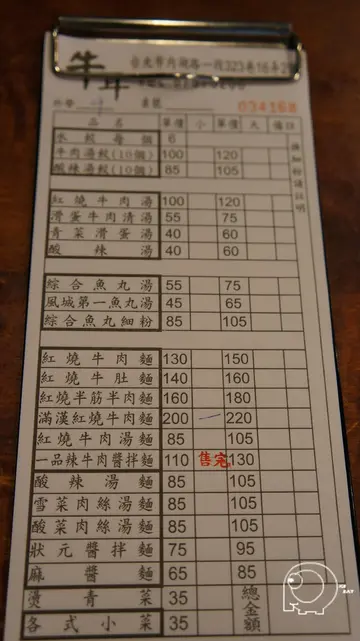 牛
台北市內湖路一段323巷16弄2
外帶 桌號 034168
品名 單價 小 單價 大 備註
水餃每個 6
牛肉湯餃(10個) 100 120
酸辣湯餃(10個) 85 105
紅燒牛肉湯 100 120
滑蛋牛肉清湯 55 75
青菜滑蛋湯 40 60
酸辣湯 40 60
綜合魚丸湯 55 75
風城第一魚丸湯 45 65
綜合魚丸細粉 85 105
紅燒牛肉麵 130 150
紅燒牛肚麵 140 160
紅燒半筋半肉麵 160 180
滿漢紅燒牛肉麵 200 220
紅燒牛肉湯麵 85 105
一品辣牛肉醬拌麵 110 售完 130
酸辣湯麵 85 105
雪菜肉絲湯麵 85 105
酸菜肉絲湯麵 85 105
狀元醬拌麵 75 95
麻醬麵 65 85
燙青菜 35 總金額
各式小菜 35
換細粉請註明